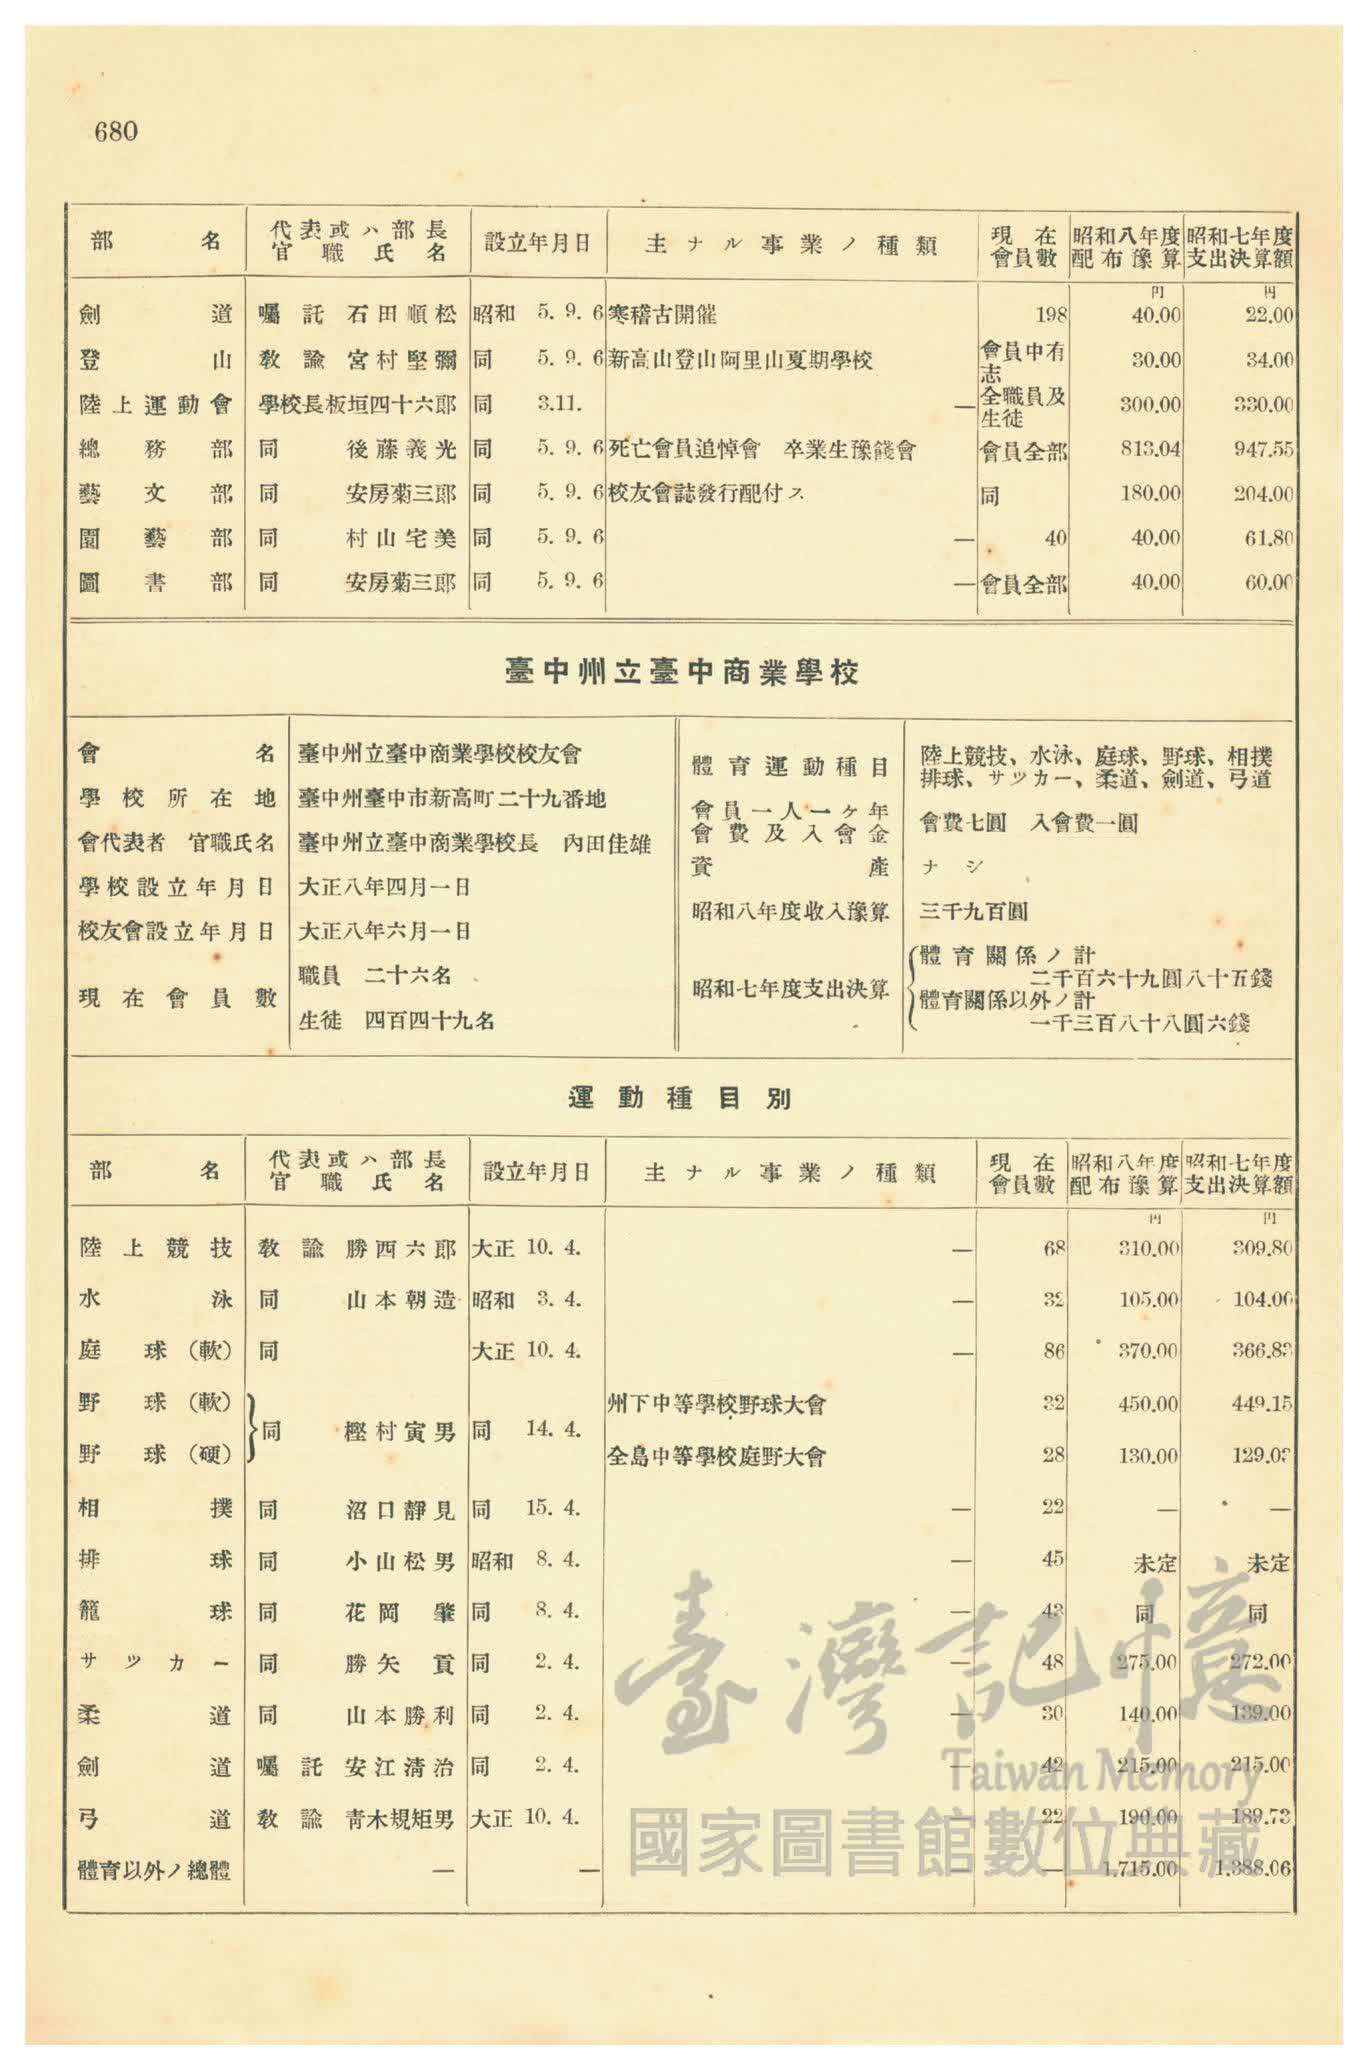 680
部名 代表或ハ部長官職氏名 設立年月日 主ナル事業ノ種類 現在會員數 昭和八年度配布豫算 昭和七年度支出決算額
円 円
劍道 囑託 石田順松 昭和 5. 9. 6 寒稽古開催 198 40.00 22.00
登山 敎諭 宮村堅彌 同 5. 9. 6 新高山登山阿里山夏期學校 會員中有志 30.00 34.00
陸上運動會 學校長板垣四十六郎 同 3.11. — 全職員及生徒 300.00 330.00
總務部 同 後藤義光 同 5. 9. 6 死亡會員追悼會 卒業生豫餞會 會員全部 813.04 947.55
藝文部 同 安房菊三郎 同 5. 9. 6 校友會誌發行配付ス 同 180.00 204.00
園藝部 同 村山宅美 同 5. 9. 6 — 40 40.00 61.80
圖書部 同 安房菊三郎 同 5. 9. 6 — 會員全部 40.00 60.00
臺中州立臺中商業學校
會名 臺中州立臺中商業學校校友會
學校所在地 臺中州臺中市新高町二十九番地
會代表者 官職氏名 臺中州立臺中商業學校長 內田佳雄
學校設立年月日 大正八年四月一日
校友會設立年月日 大正八年六月一日
現在會員數 職員 二十六名
生徒 四百四十九名
體育運動種目 陸上競技、水泳、庭球、野球、相撲
排球、サツカー、柔道、劍道、弓道
會員一人一ヶ年
會費及入會金 會費七圓 入會費一圓
資產 ナシ
昭和八年度收入豫算 三千九百圓
昭和七年度支出決算 體育關係ノ計
二千百六十九圓八十五錢
體育關係以外ノ計
一千三百八十八圓六錢
運動種目別
部名 代表或ハ部長官職氏名 設立年月日 主ナル事業ノ種類 現在會員數 昭和八年度配布豫算 昭和七年度支出決算額
円 円
陸上競技 敎諭 勝西六郎 大正 10. 4. — 68 310.00 309.80
水泳 同 山本朝造 昭和 3. 4. — 32 105.00 104.00
庭球(軟) 同 大正 10. 4. — 86 370.00 366.83
野球(軟) 同 樫村寅男 同 14. 4. 州下中等學校野球大會 32 450.00 449.15
野球(硬) 全島中等學校庭野大會 28 130.00
相撲 同 沼口靜見 同 15. 4. — 22 — —
排球 同 小山松男 昭和 8. 4. — 45 未定 未定
籠球 同 花岡肇 同 8. 4. — 43 同 同
サツカー 同 勝矢貢 同 2. 4. — 48 275.00 272.00
柔道 同 山本勝利 同 2. 4. — 30 140.00 139.00
劍道 囑託 安江淸治 同 2. 4. — 42 215.00 215.00
弓道 敎諭 靑木規矩男 大正 10. 4. — 22 190.00 189.73
體育以外ノ總體 — — — — 1,715.00 1,388.06
臺灣記憶
Taiwan Memory
國家圖書館數位典藏